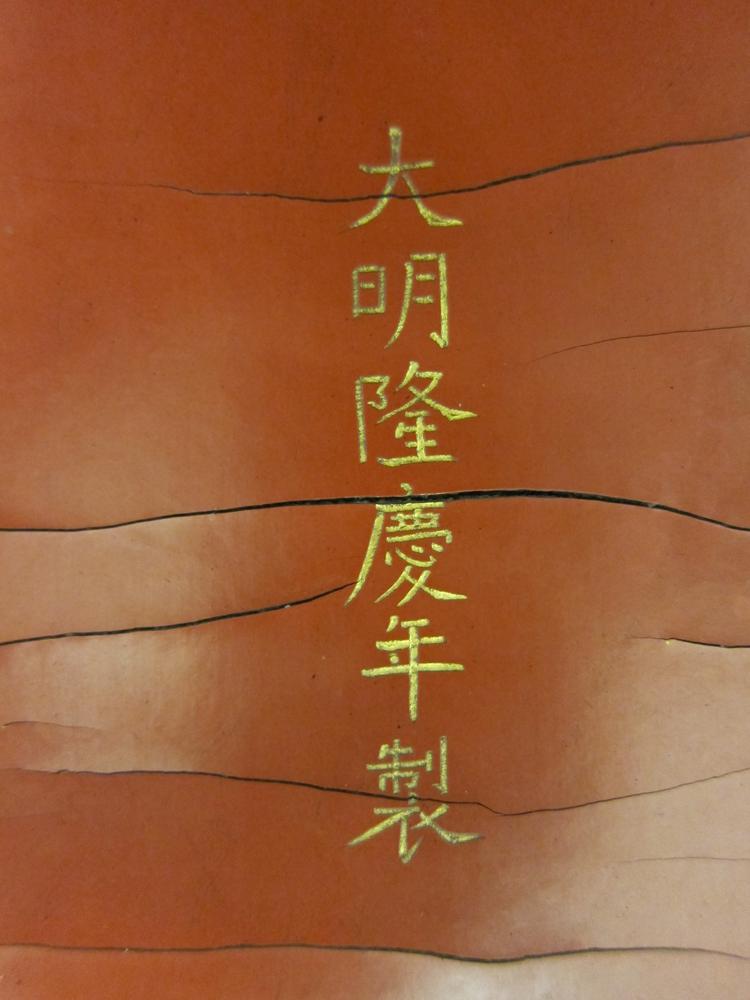 大明隆慶年製